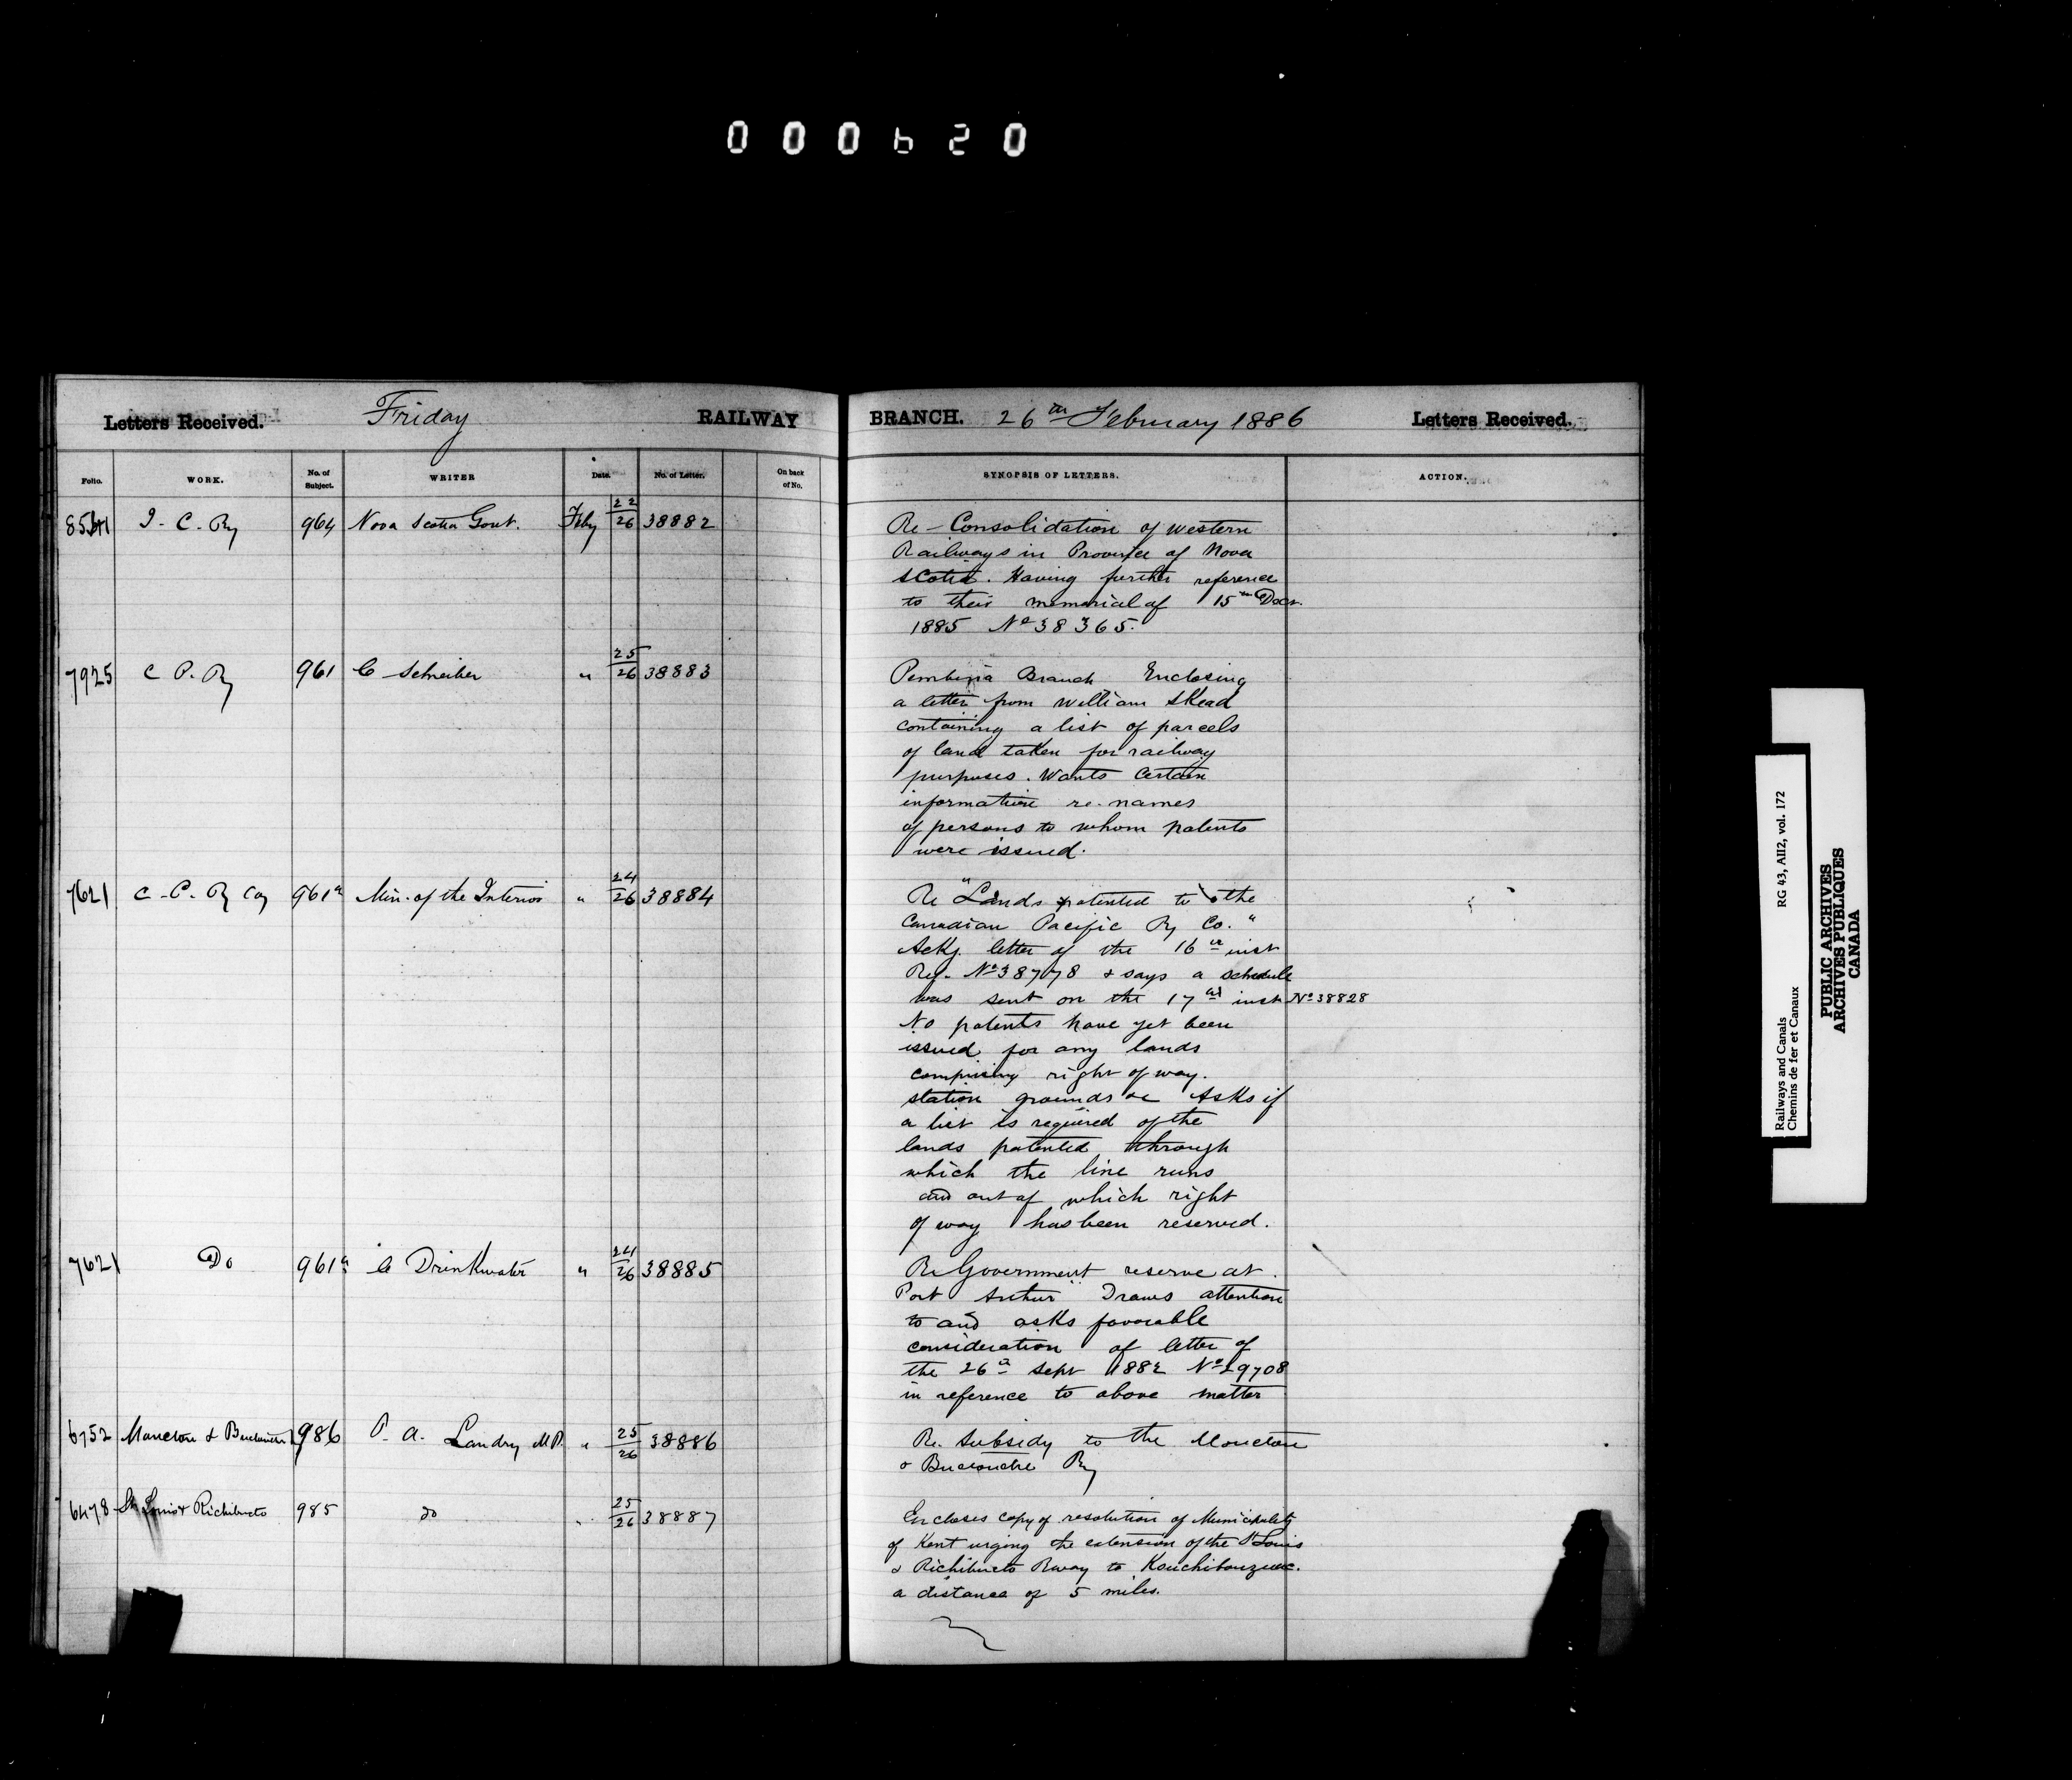 000620
Letters Received. Friday RAILWAY BRANCH. 26th February 1886 Letters Received.
Folio. WORK. No. of Subject. WRITER Date. No. of Letter. On back of No. SYNOPSIS OF LETTERS. ACTION.
I. C. Ry 964 Nova Scotia Govt. Feby 22/26 38882
Re - Consolidation of western
Railways in Province of Nova
Scotia. Having further reference
to their memorial of 15th Decr.
1885 No 38365.
7925 C P. Ry 961 C Schreiber " 25/26 38883
Pembina Branch Enclosing
a letter from William Skead
containing a list of parcels
of land taken for railway
purposes. Wants certain
information re. names
of persons to whom patents
were issued.
7621 C. P. Ry Coy 961a Min. of the Interior " 24/26 38884
Re "Lands patented to the
Canadian Pacific Ry Co."
Ackg. letter of the 16th inst
Reg. No 38778 & says a schedule
was sent on the 17th inst No 38828
No patents have yet been
issued for any lands
comprising right of way.
station grounds &c Asks if
a list is required of the
lands patented through
which the line runs
and out of which right
of way has been reserved.
7621 Do 961a C Drinkwater " 24/26 38885
Re Government reserve at
Port Arthur Draws attention
to and asks favorable
consideration of letter of
the 26th Sept 1882 No 29708
in reference to above matter
6752 Moncton & Buctouche 986 P. A. Landry M.P. " 25/26 38886
Re. Subsidy to the Moncton
& Buctouche Ry
6478 St Louis & Richibucto 985 do " 25/26 38887
Encloses copy of resolution of Municipality
of Kent urging the extension of the St Louis
& Richibucto Rway to Kouchibouguac.
a distance of 5 miles.
Railways and Canals RG 43, AII2, vol. 172
Chemins de fer et Canaux
PUBLIC ARCHIVES
ARCHIVES PUBLIQUES
CANADA